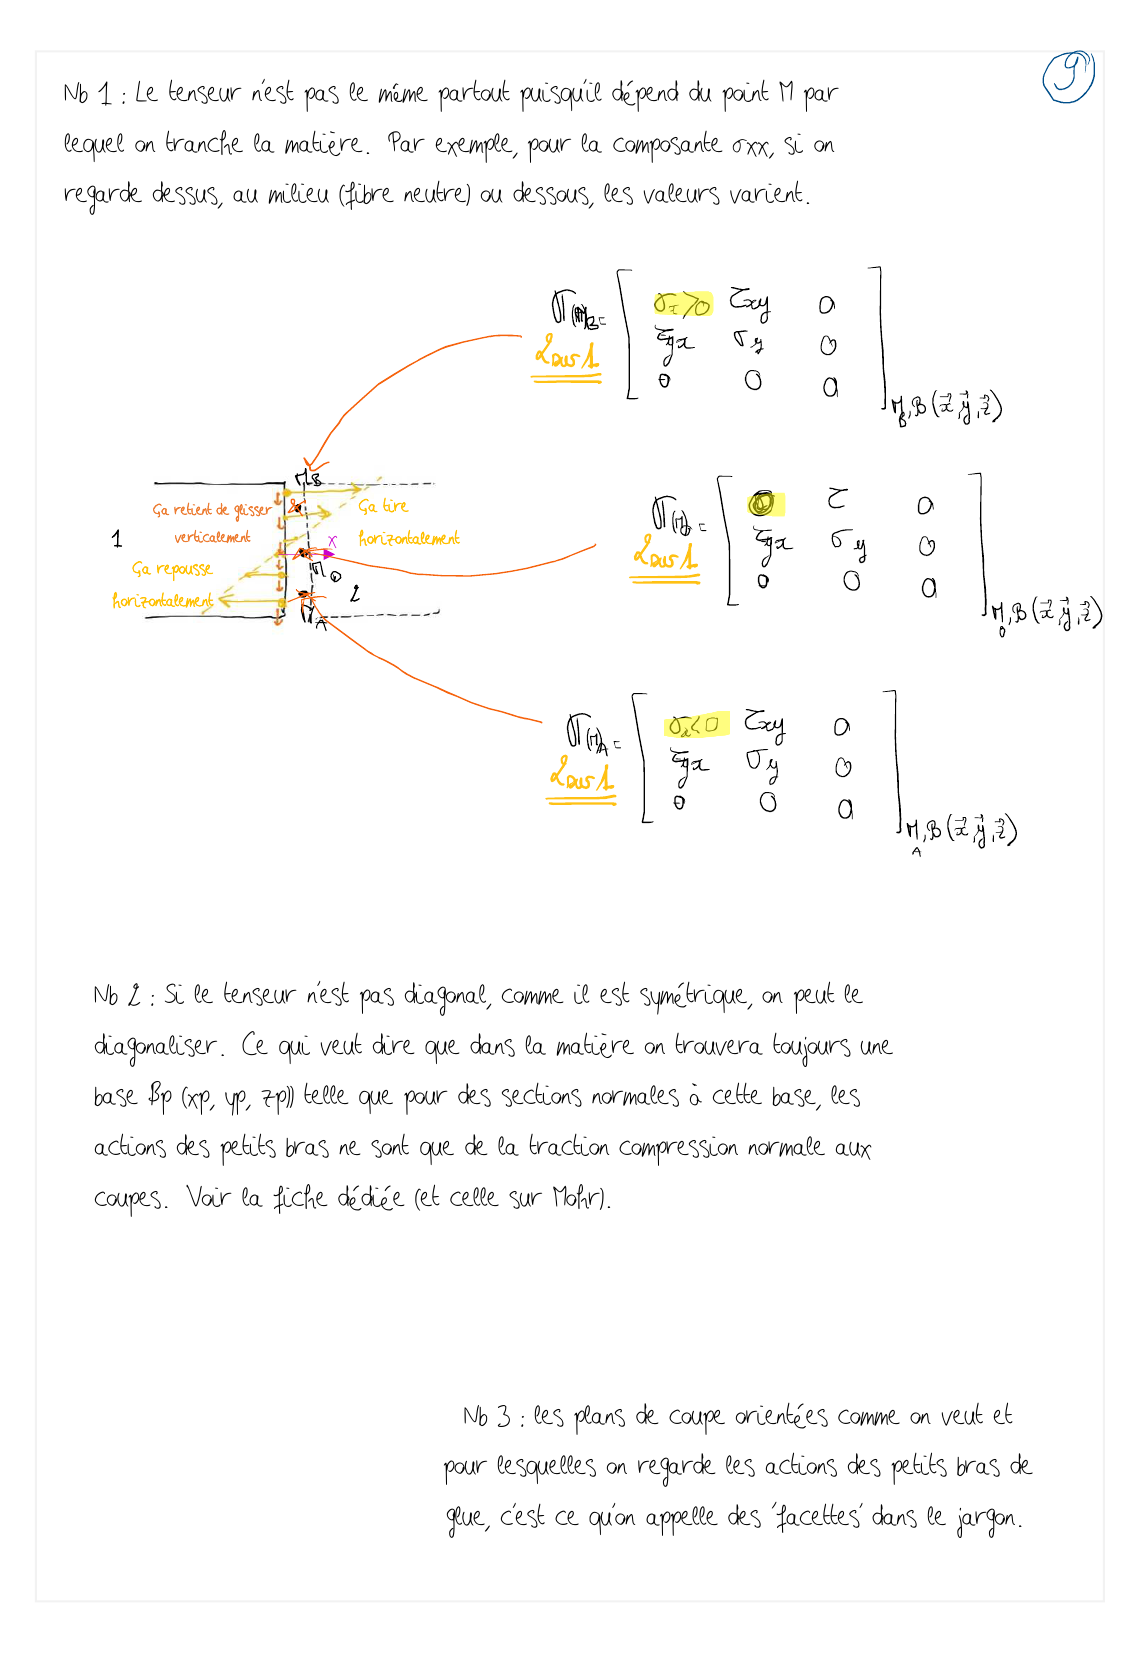 9
Nb 1 : Le tenseur n'est pas le même partout puisqu'il dépend du point M par
lequel on tranche la matière. Par exemple, pour la composante σxx, si on
regarde dessus, au milieu (fibre neutre) ou dessous, les valeurs varient.
σ(M)B = [ σx>0 τxy 0
2 sur 1 τyx σy 0
0 0 0 ] MB, B(x⃗,y⃗,z⃗)
MB
Ça retient de glisser
verticalement
Ça tire
horizontalement
1
x
Ça repousse
horizontalement
M0
2
MA
σ(M)0 = [ 0 τ 0
2 sur 1 τyx σy 0
0 0 0 ] M0, B(x⃗,y⃗,z⃗)
σ(M)A = [ σx<0 τxy 0
2 sur 1 τyx σy 0
0 0 0 ] MA, B(x⃗,y⃗,z⃗)
Nb 2 : Si le tenseur n'est pas diagonal, comme il est symétrique, on peut le
diagonaliser. Ce qui veut dire que dans la matière on trouvera toujours une
base βp (xp, yp, zp)) telle que pour des sections normales à cette base, les
actions des petits bras ne sont que de la traction compression normale aux
coupes. Voir la fiche dédiée (et celle sur Mohr).
Nb 3 : les plans de coupe orientées comme on veut et
pour lesquelles on regarde les actions des petits bras de
glue, c'est ce qu'on appelle des 'facettes' dans le jargon.